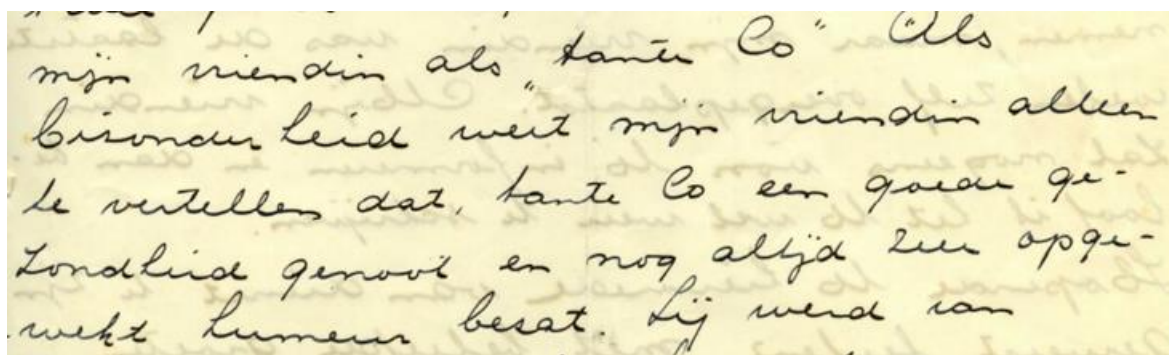 mijn vriendin als „tante Co" Als
bisonderheid weet mijn vriendin alleen
te vertellen dat, tante Co een goede ge-
zondheid genoot en nog altijd zeer opge-
wekt humeur besat. Zij werd van